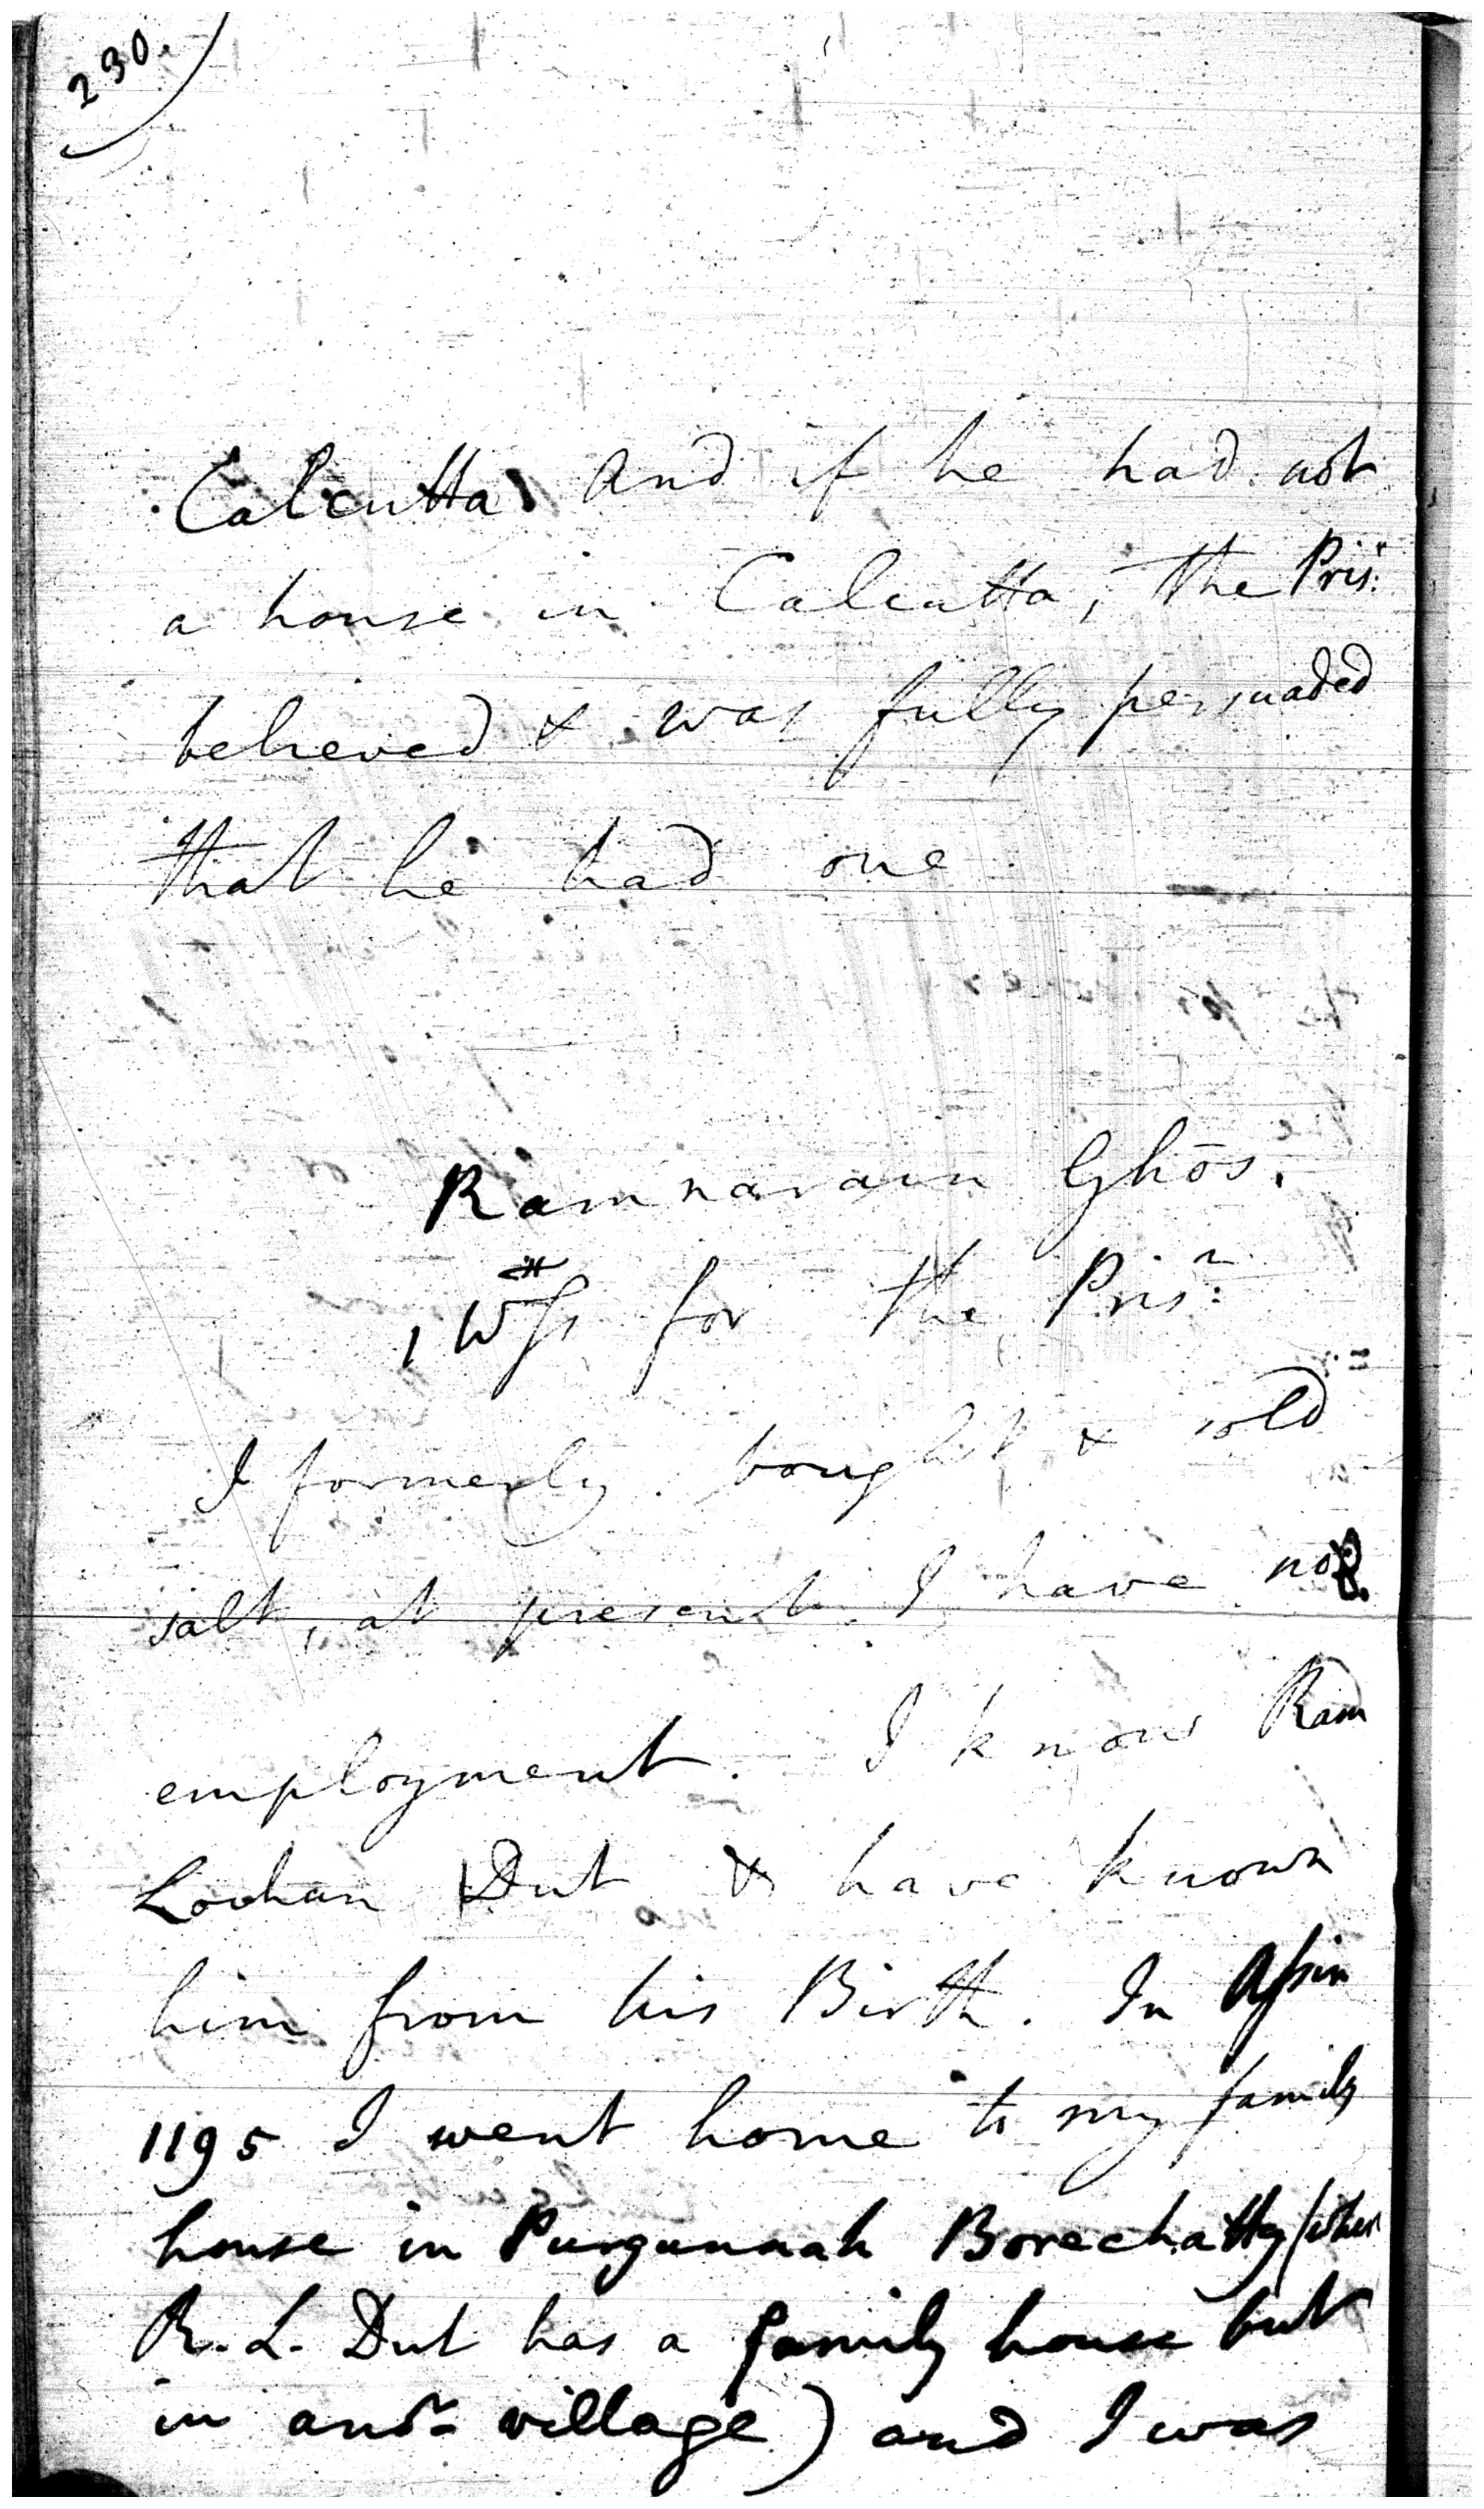 230.
Calcutta and if he had not
a house in Calcutta, the Prisr.
believed & was fully persuaded
that he had one
Ramnarain Ghōs.
1 Wſs for the Prisn:
I formerly bought & sold
salt, at present I have no
employment. I know Ram
Lochan Dut & have known
him from his Birth. In Aſsin
1195 I went home to my family
house in Purgunnah Borechatty (where
R. L. Dut has a family house but
in anor village) and I was